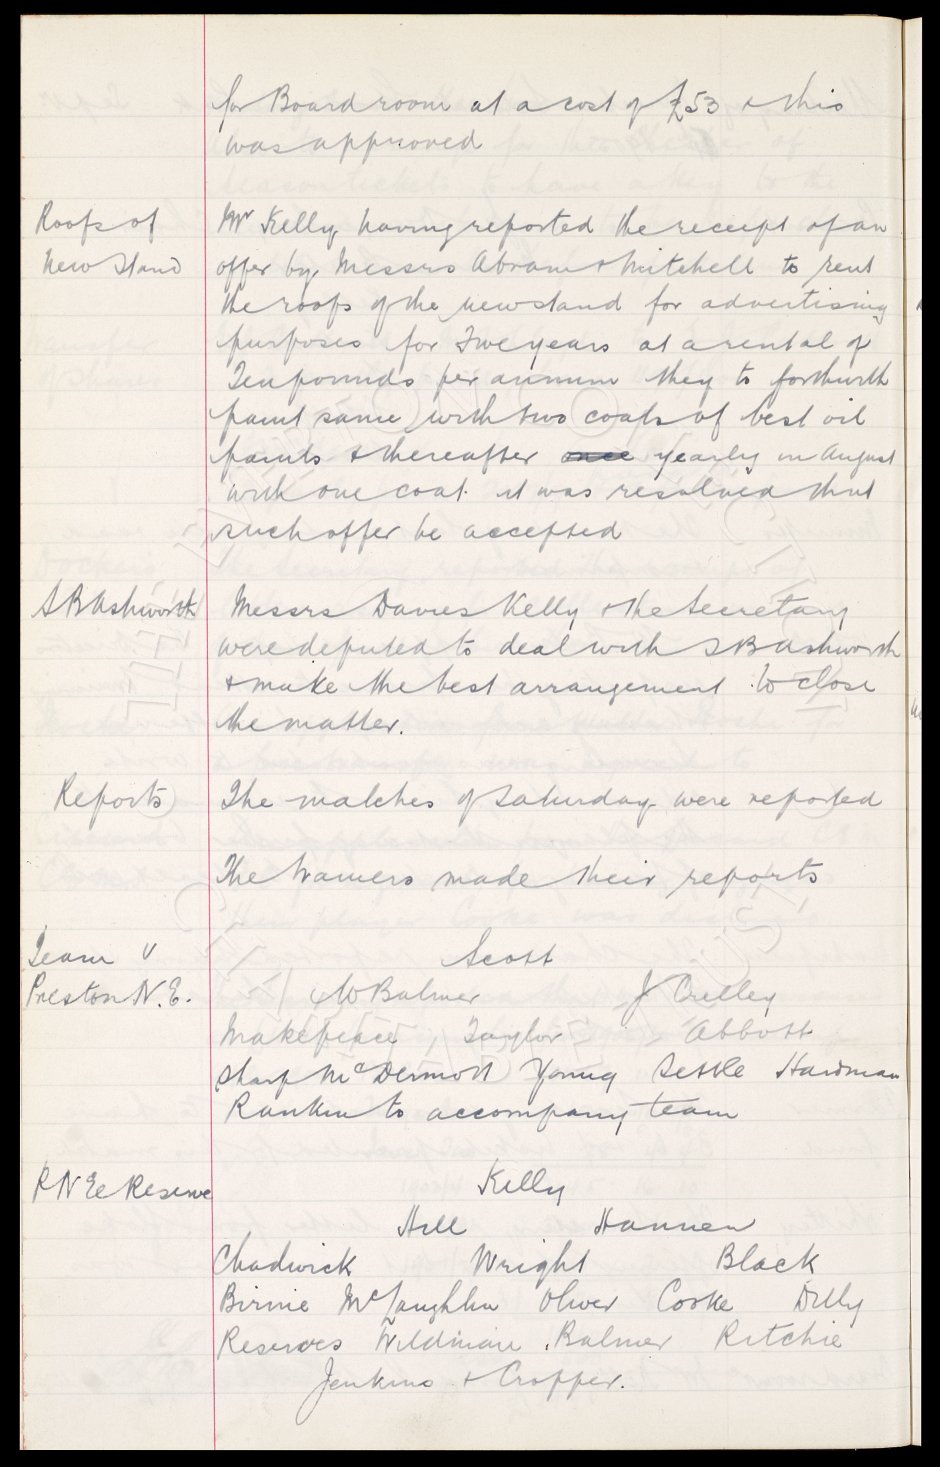 for Board room at a cost of £53 & this
was approved
Roofs of
New Stand
Mr Kelly having reported the receipt of an
offer by Messrs Abram & Mitchell to rent
the roofs of the new stand for advertising
purposes for Five years at a rental of
Ten pounds per annum they to forthwith
paint same with two coats of best oil
paints & thereafter once yearly in August
with one coat. it was resolved that
such offer be accepted
S B Ashworth
Messrs Davies Kelly & the Secretary
were deputed to deal with S B Ashworth
& make the best arrangement to close
the matter.
Reports
The matches of Saturday were reported
The trainers made their reports
Team v
Preston N.E.
Scott
W Balmer J Crelley
Makepeace Taylor Abbott
Sharp McDermott Young Settle Hardman
Rankin to accompany team
P N E Reserve
Kelly
Hill Hannen
Chadwick Wright Black
Birnie McLaughlin Oliver Cooke Dilly
Reserves Wildman Balmer Ritchie
Jenkins & Cropper.